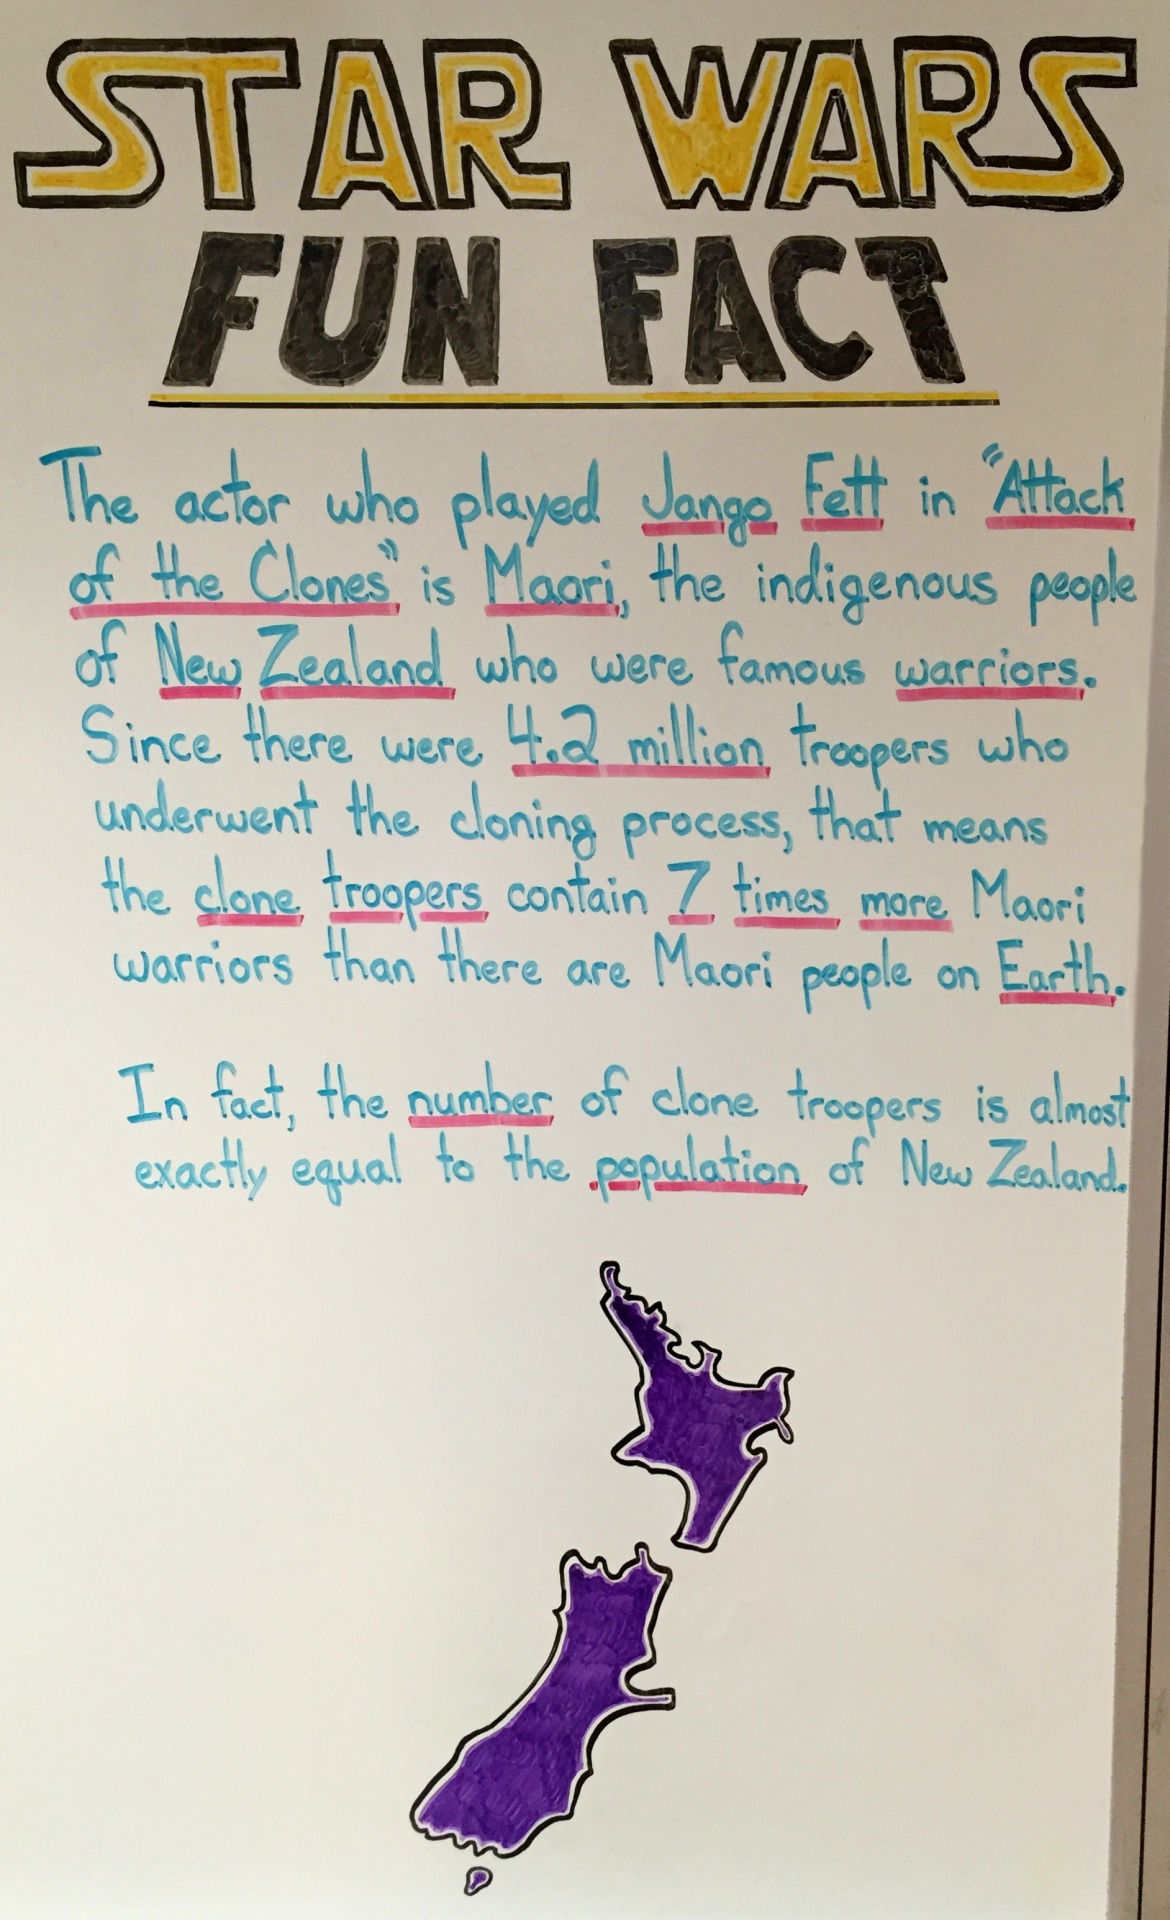 STAR WARS
FUN FACT
The actor who played Jango Fett in "Attack
of the Clones" is Maori, the indigenous people
of New Zealand who were famous warriors.
Since there were 4.2 million troopers who
underwent the cloning process, that means
the clone troopers contain 7 times more Maori
warriors than there are Maori people on Earth.
In fact, the number of clone troopers is almost
exactly equal to the population of New Zealand.